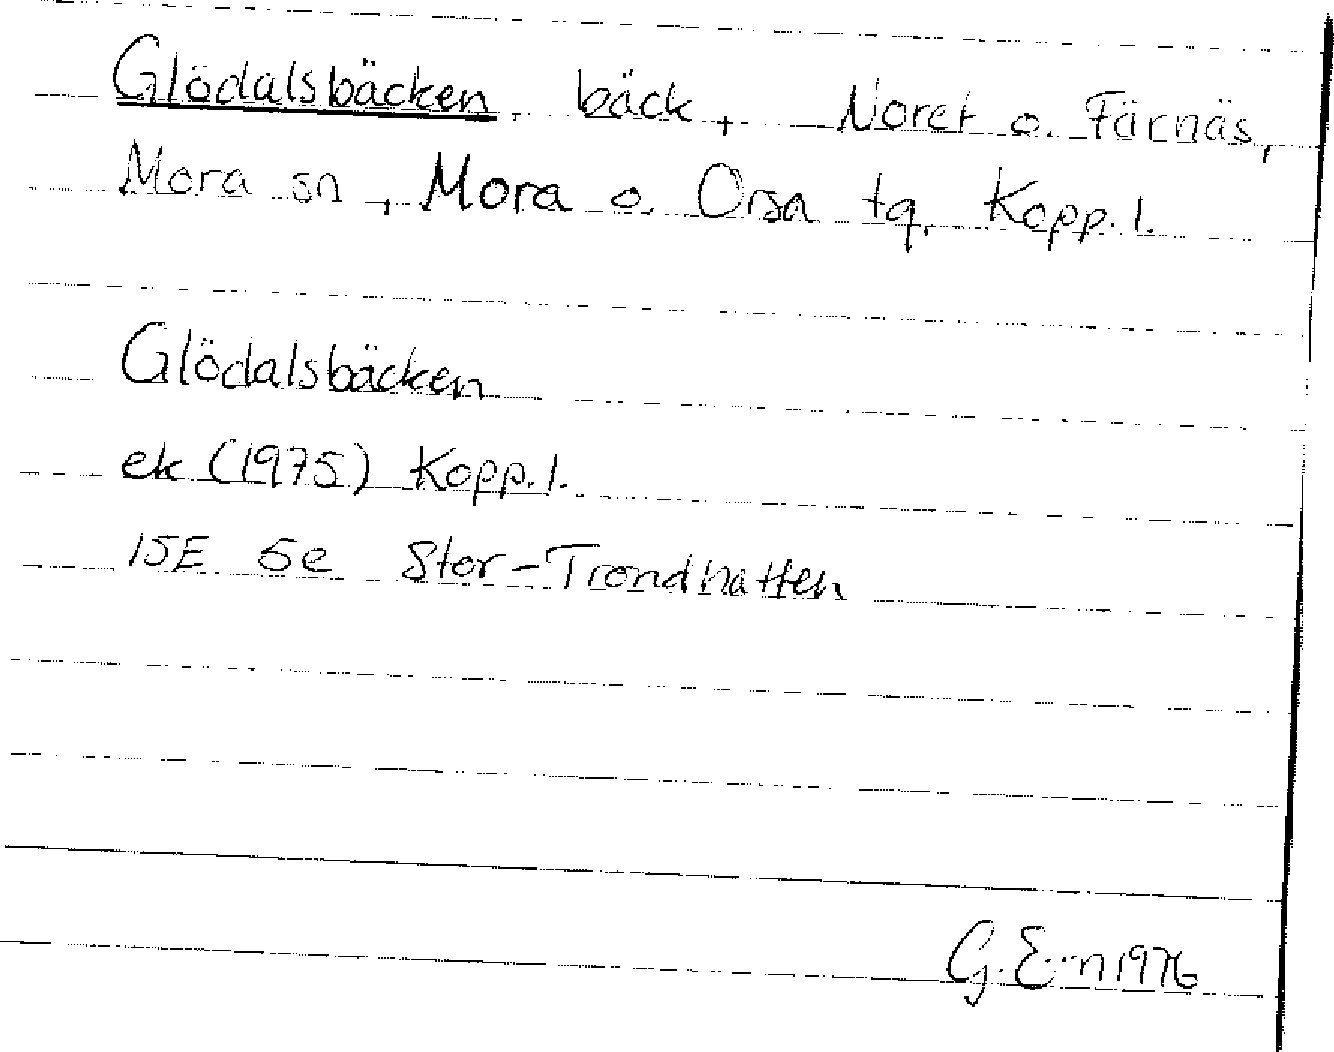 Glödalsbäcken, bäck, Noret o. Färnäs,
Mora sn, Mora o. Orsa tg, Kopp. l.
Glödalsbäcken
ek (1975) Kopp. l.
15E 5e Stor-Trondhatten
G. E-n 1976